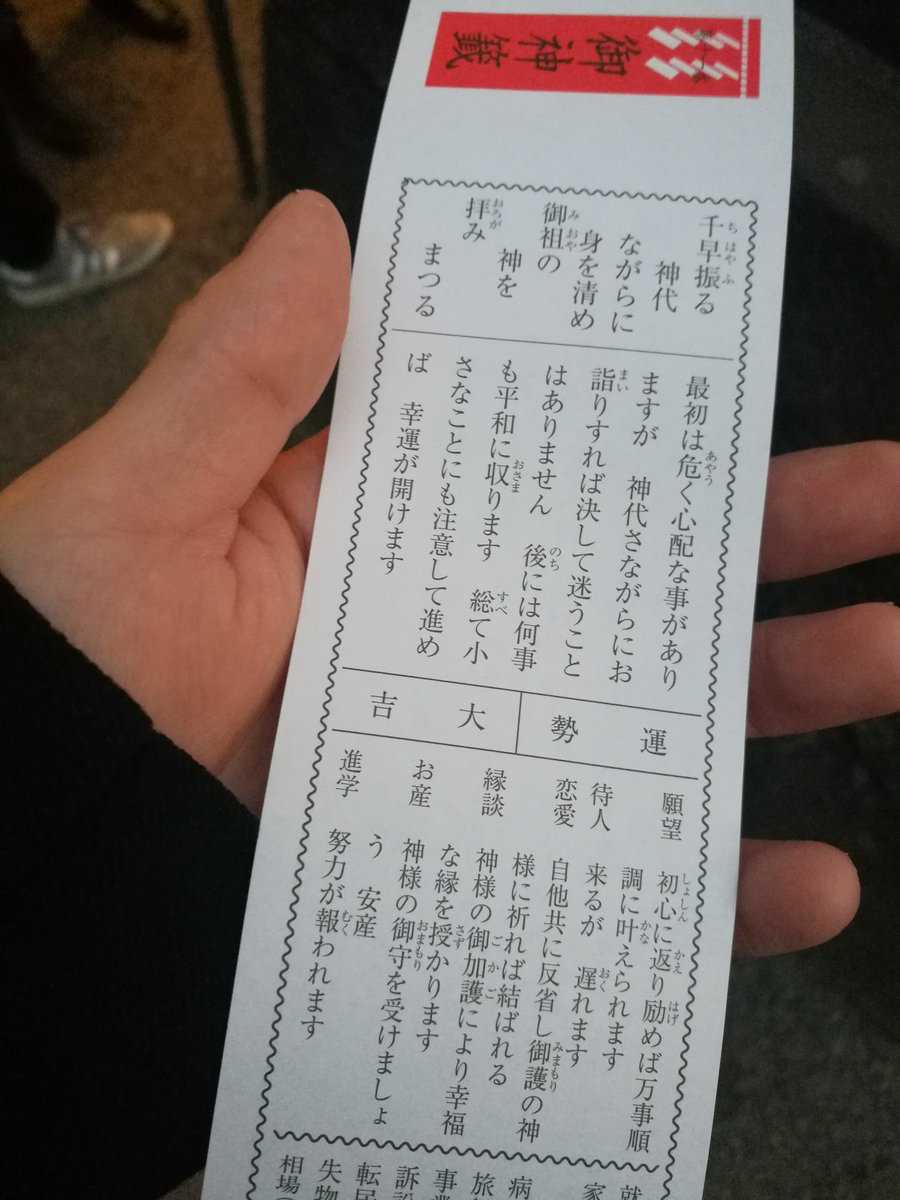 御神籤
千早振る
神代
ながらに
身を清め
御祖の
神を
拝み
まつる
最初は危く心配な事があり
ますが 神代さながらにお
詣りすれば決して迷うこと
はありません 後には何事
も平和に収ります 総て小
さなことにも注意して進め
ば 幸運が開けます
運勢
大吉
願望 初心に返り励めば万事順
調に叶えられます
待人 来るが 遅れます
恋愛 自他共に反省し御護の神
様に祈れば結ばれる
縁談 神様の御加護により幸福
な縁を授かります
お産 神様の御守を受けましょ
う 安産
進学 努力が報われます
就
家
病
旅
事業
訴訟
転居
失物
相場